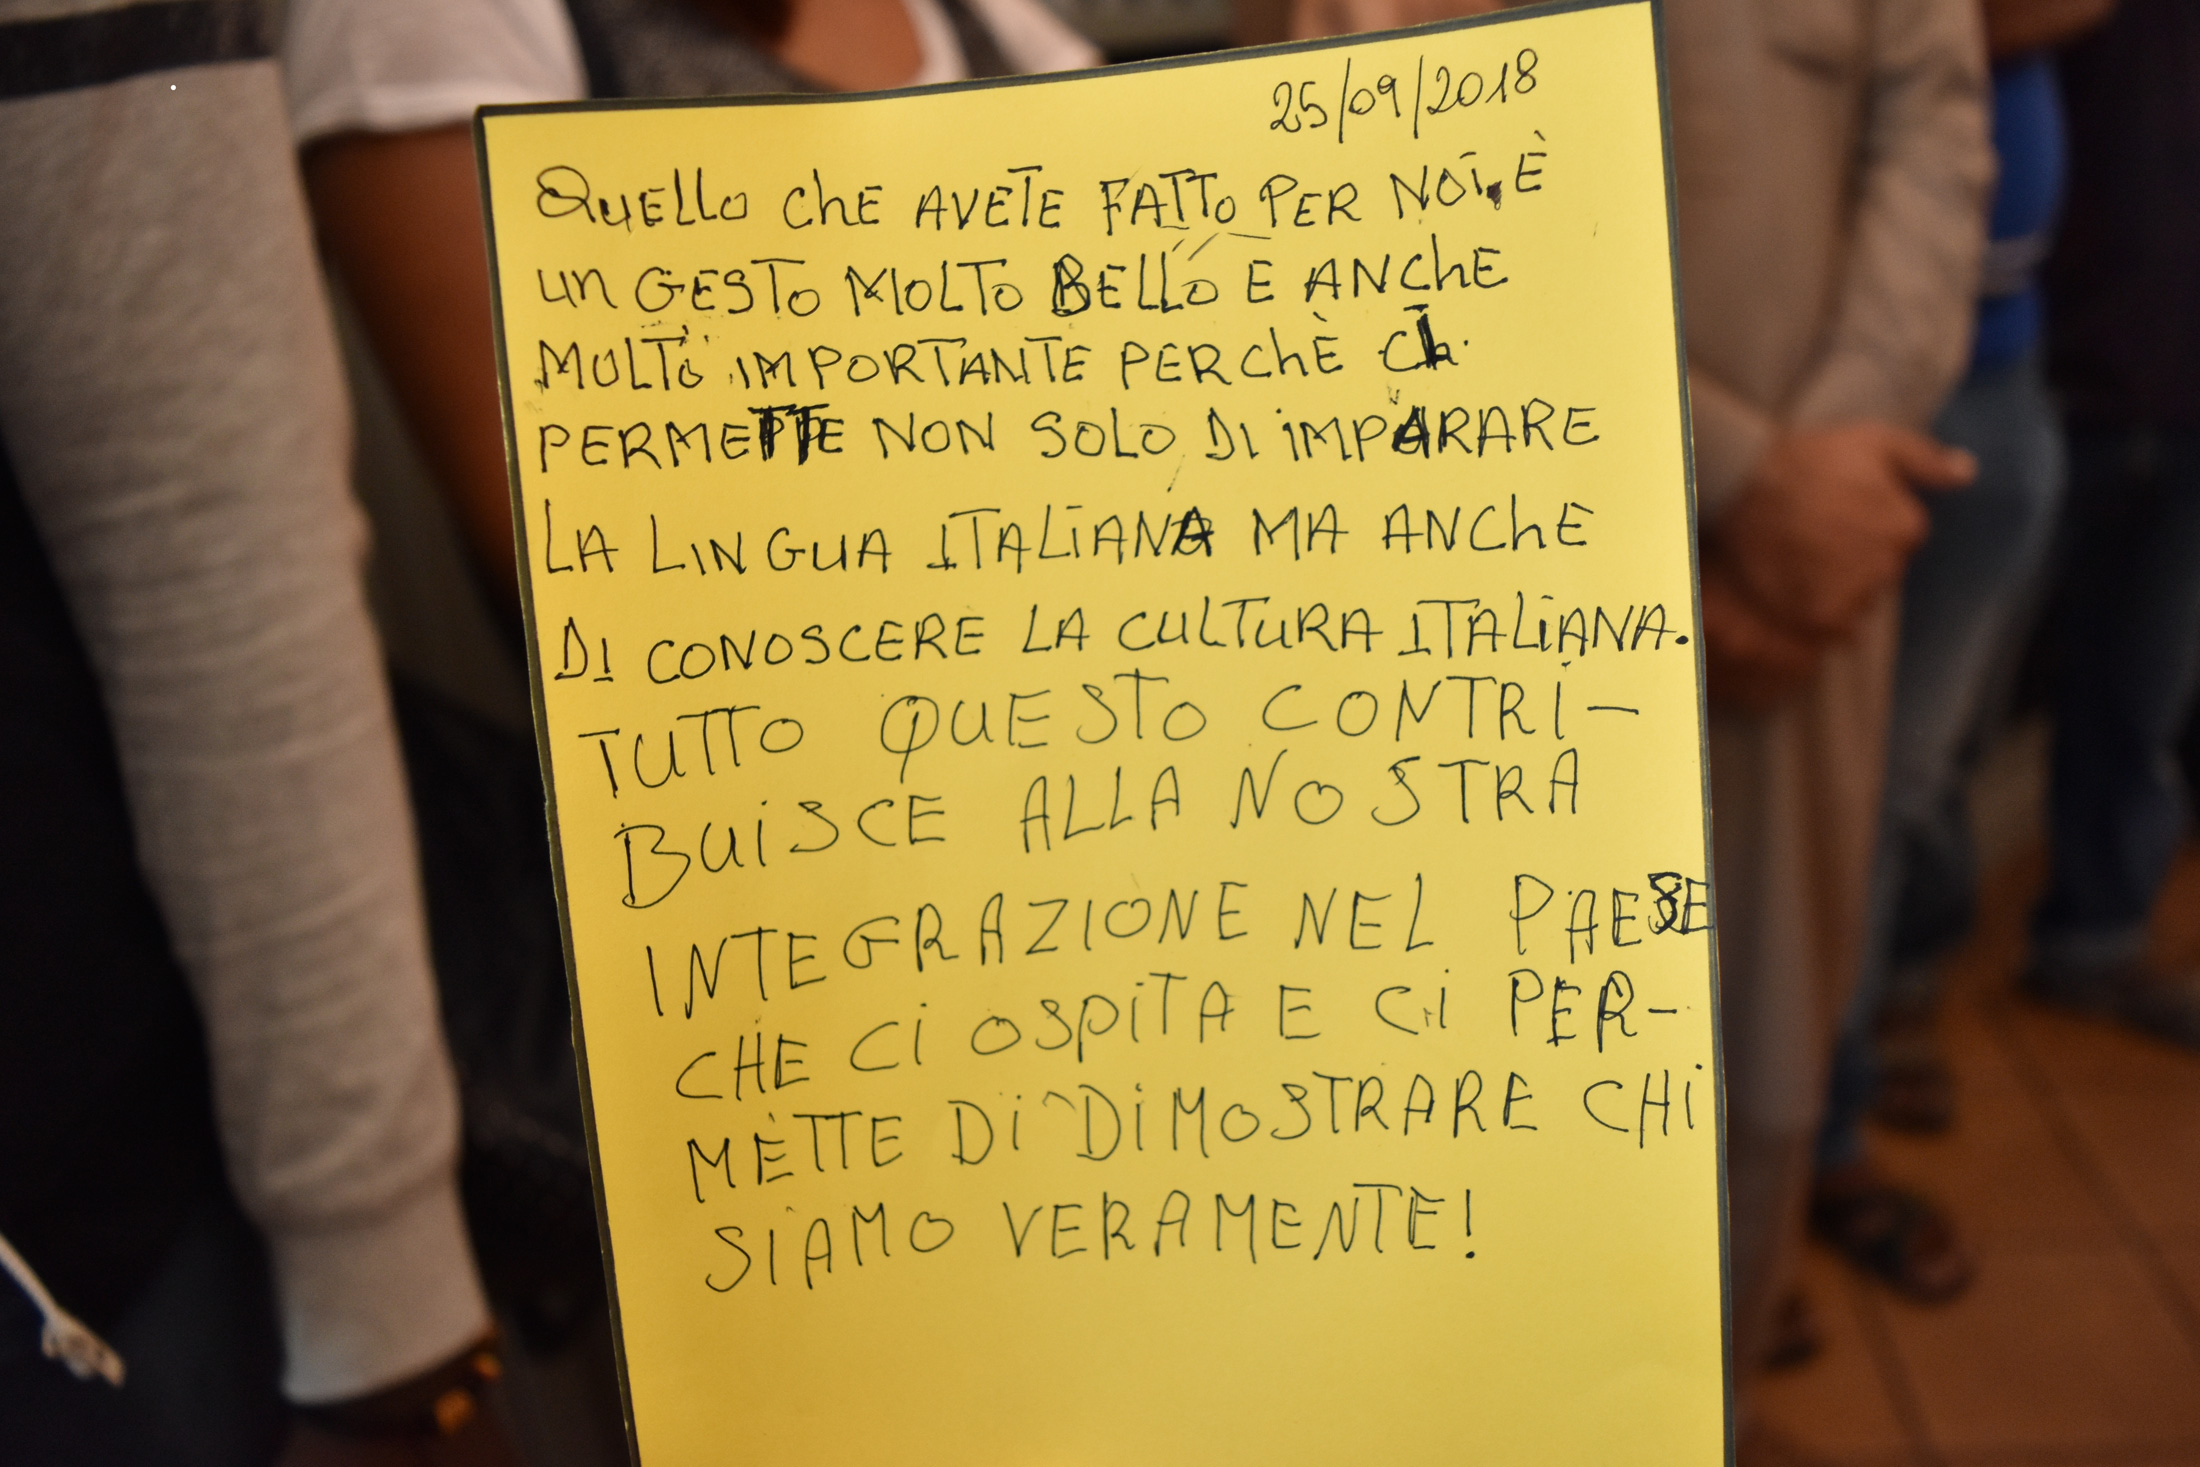 25/09/2018
QUELLO ChE AVETE FATTO PER NOI È
UN GESTO MOLTO BELLO E ANChE
MOLTO IMPORTANTE PERChÈ CI
PERMETTE NON SOLO DI IMPARARE
LA LINGUA ITALIANA MA ANChE
DI CONOSCERE LA CULTURA ITALIANA.
TUTTO QUESTO CONTRI-
BUISCE ALLA NOSTRA
INTEGRAZIONE NEL PAESE
CHE CI OSPITA E CI PER-
METTE DI DIMOSTRARE CHI
SIAMO VERAMENTE!